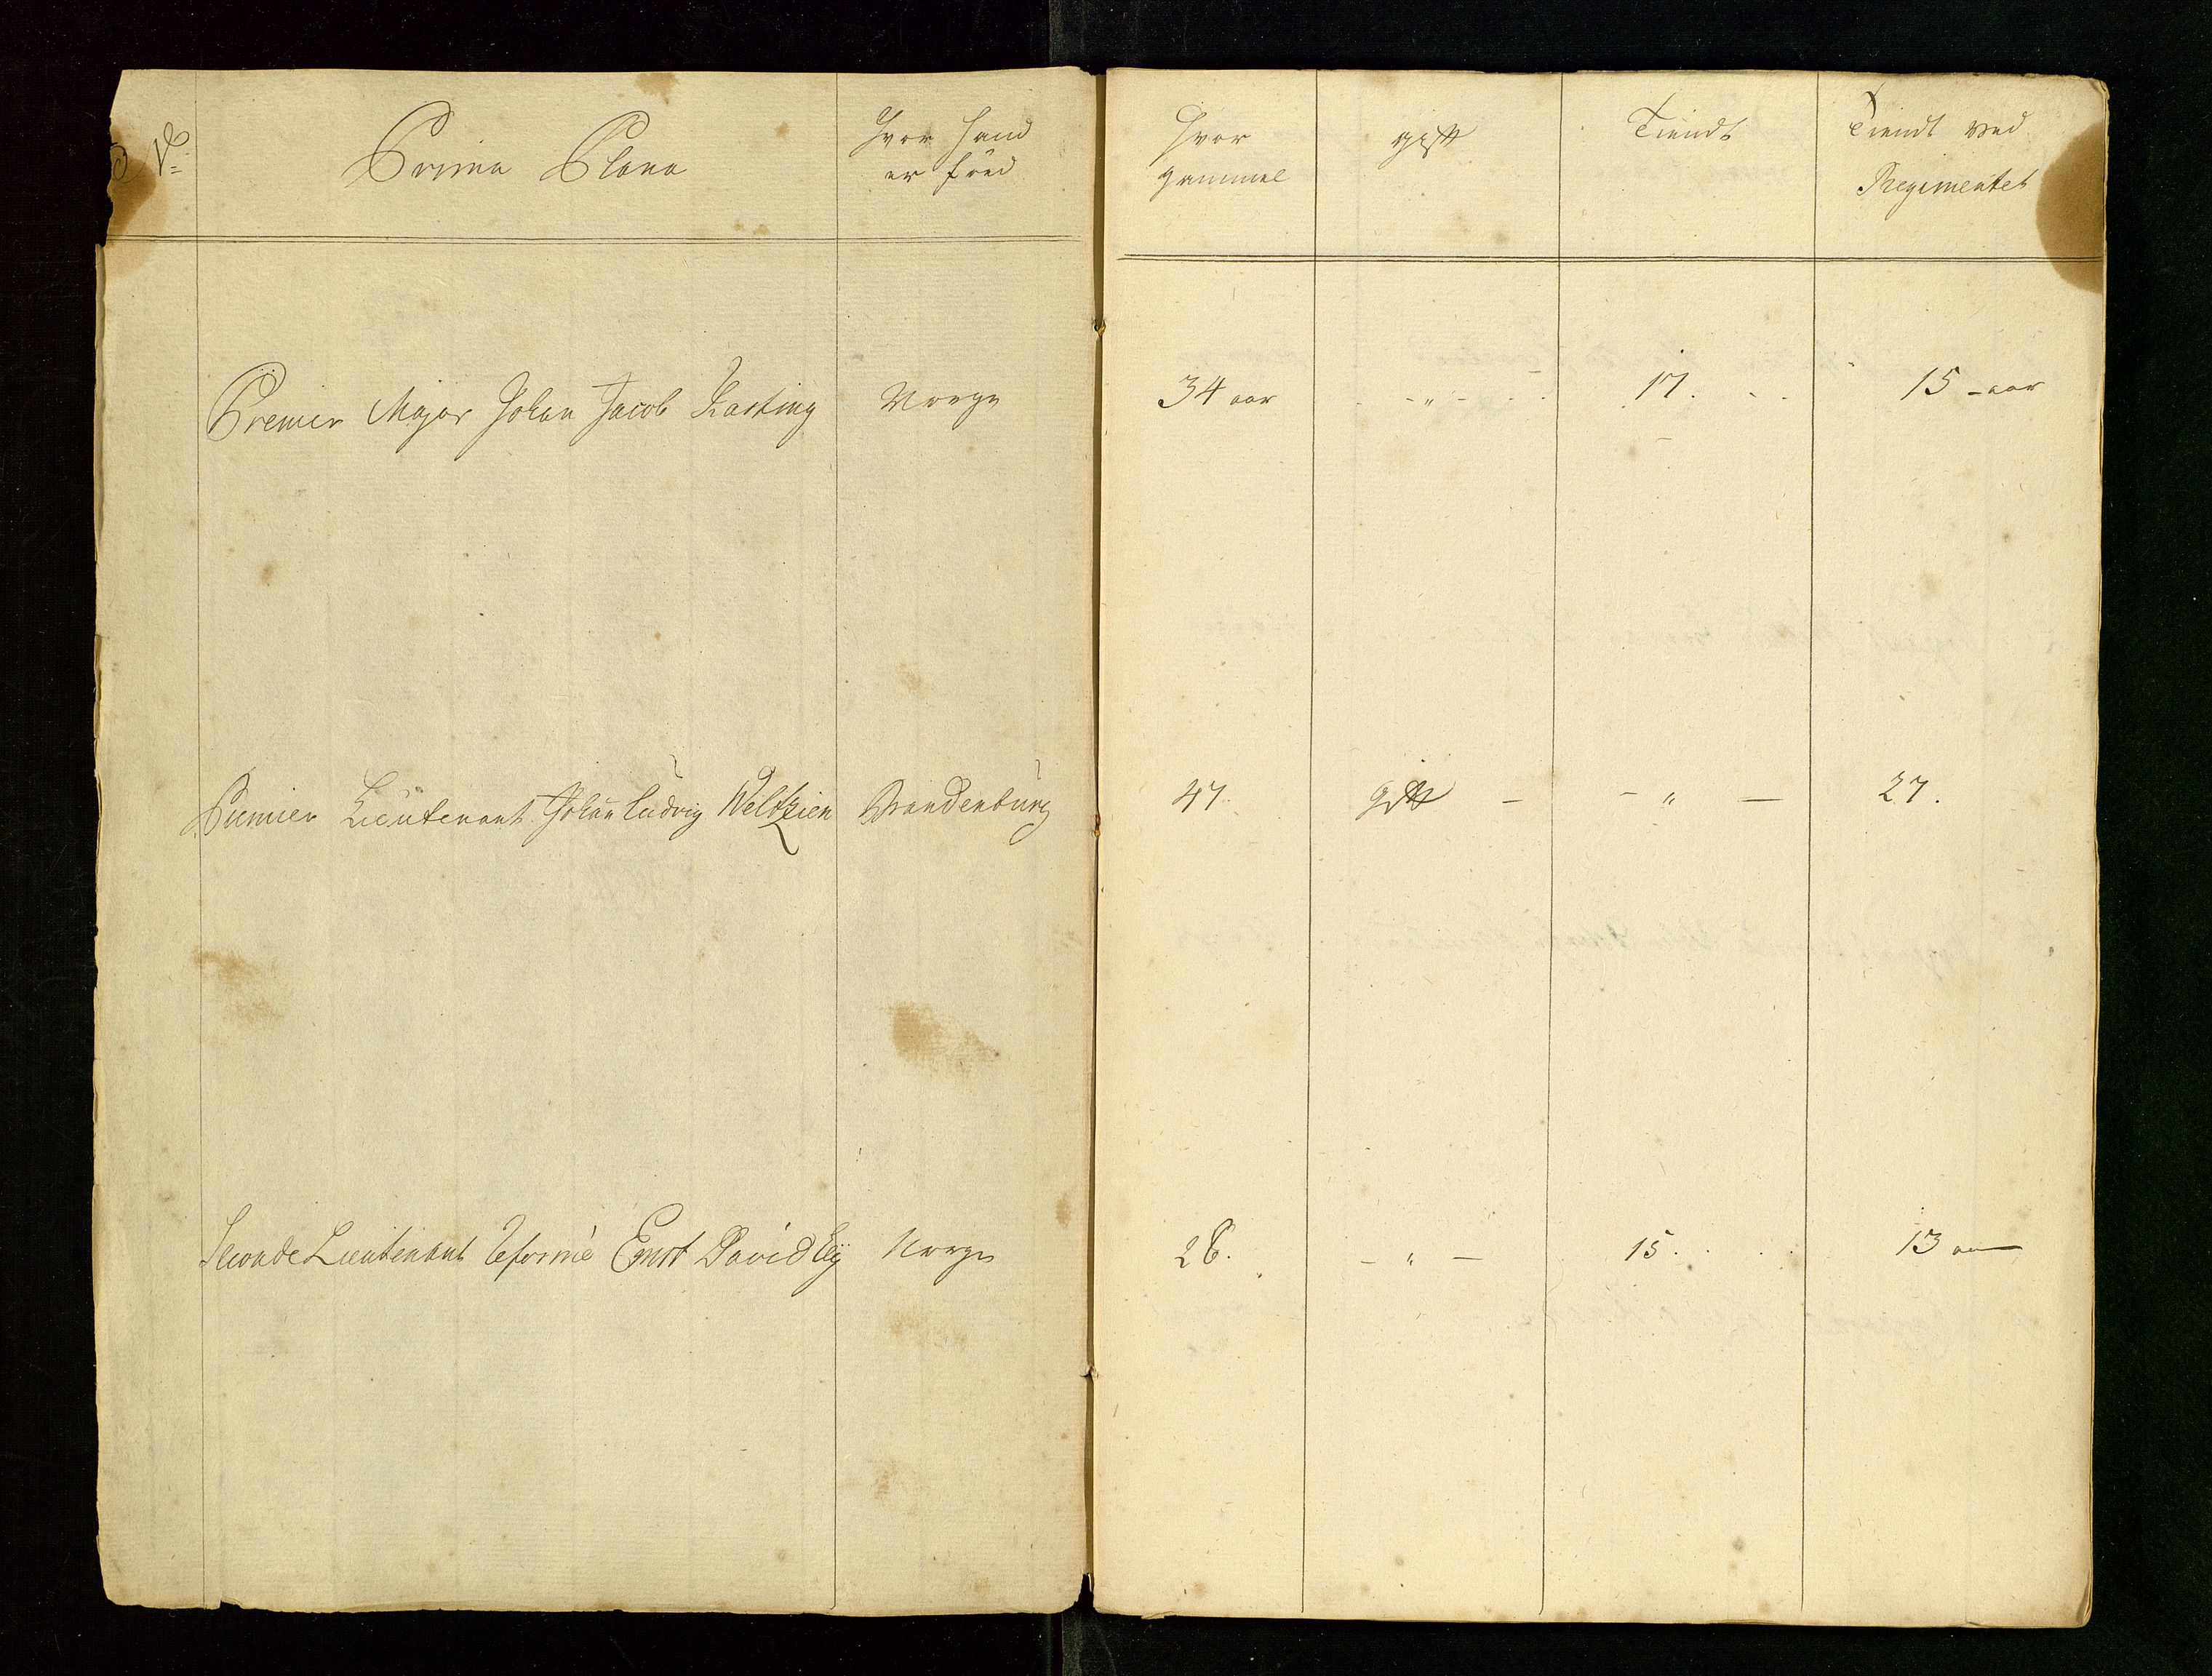 No
Prima Plana
Hvor hand
er föed
Hvor
gammel
gift
Tient
Tient ved
Regimentet
Premier Major Johan Jacob Kasting
Norge
34 aar
- " -
17.
15 - aar
Premier Lieutenant Johan Ludvig Weltzien
Brandenburg
47.
gift -
- " -
27.
Seconde Lieutenant reformè Ernst David Ely
Norge
28.
- " -
15.
13 aar